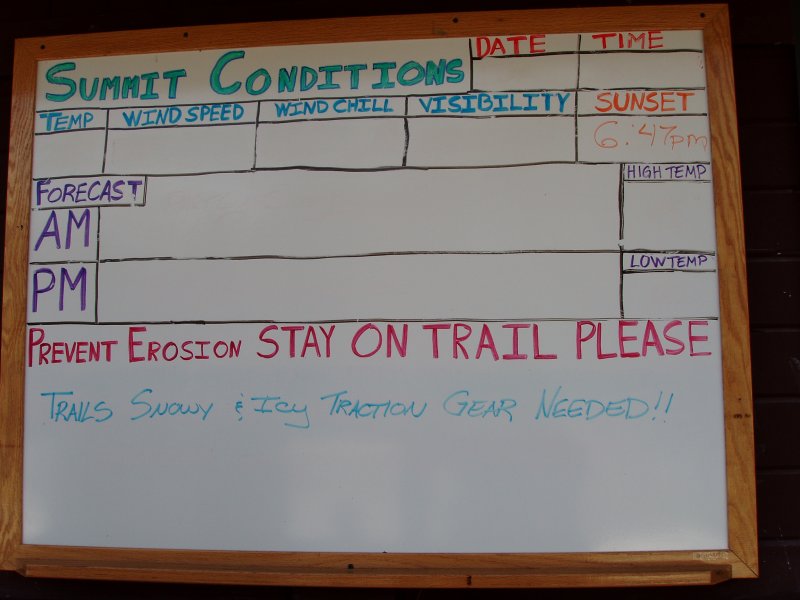 SUMMIT CONDITIONS DATE TIME
TEMP WIND SPEED WIND CHILL VISIBILITY SUNSET
6:47pm
FORECAST HIGH TEMP
AM
PM LOW TEMP
PREVENT EROSION STAY ON TRAIL PLEASE
TRAILS SNOWY & ICY TRACTION GEAR NEEDED!!